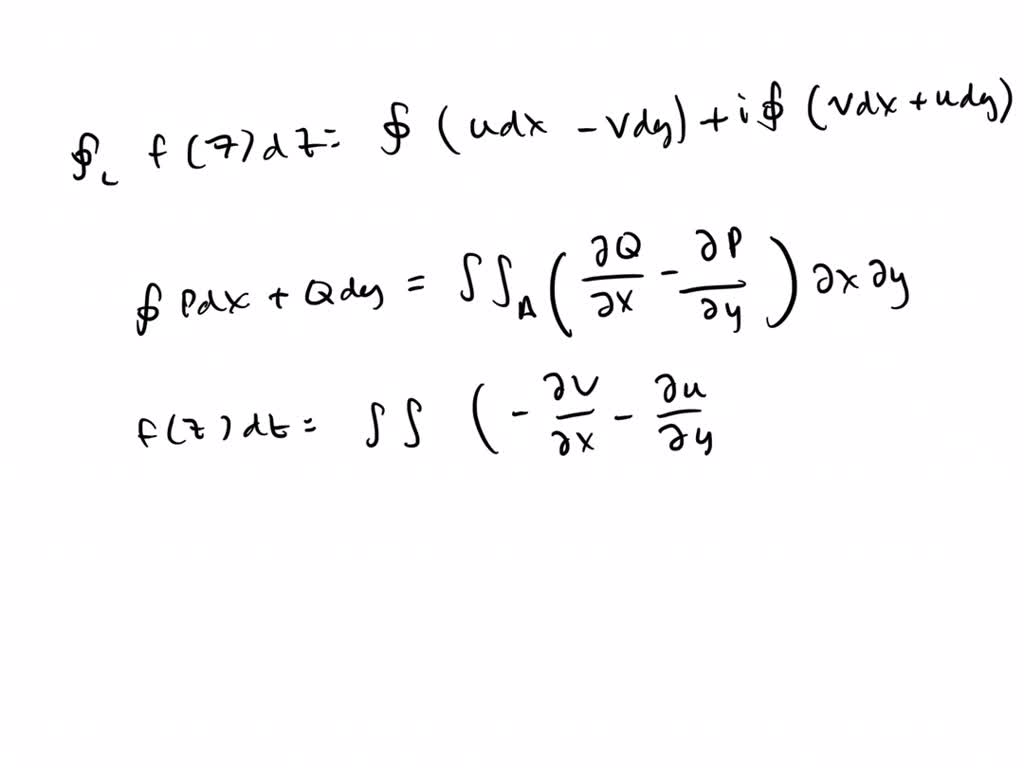 ∮_L f(z)dz= ∮ (udx - vdy) + i∮ (vdx + udy)
∮ Pdx + Qdy = ∫∫_A (∂Q/∂x - ∂P/∂y) ∂x ∂y
f(z)dz= ∫∫ (- ∂v/∂x - ∂u/∂y